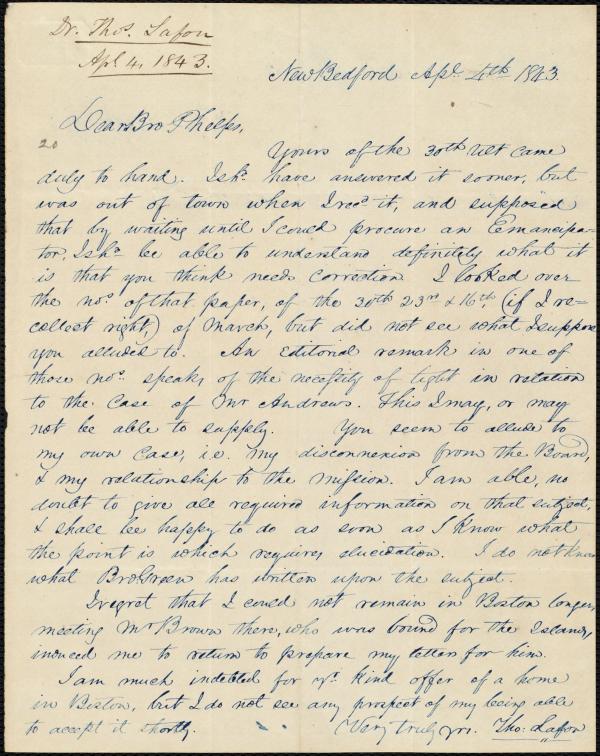 Dr. Thos. Lafon
Apl. 4, 1843.
New Bedford Apl. 4th 1843.
Dear Bro Phelps,
20
Yours of the 30th Ult came
duly to hand. I shd. have answered it sooner, but
was out of town when I recd. it, and supposed
that by waiting until I could procure an Emancipa-
tor, I shd. be able to understand definitely what it
is that you think needs correction. I looked over
the nos. of that paper, of the 30th 23rd & 16th, (if I re-
collect right,) of March, but did not see what I suppose
you alluded to. An Editorial remark in one of
those nos. speaks of the necessity of light in relation
to the case of Mr Andrews. This I may, or may
not be able to supply. You seem to allude to
my own case, i.e. my disconnexion from the Board,
& my relationship to the mission. I am able, no
doubt to give all required information on that subject,
& shall be happy to do as soon as I know what
the point is which requires elucidation. I do not know
what Bro Green has written upon the subject.
I regret that I could not remain in Boston longer,
meeting Mr Brown there, who was bound for the Islands,
induced me to return to prepare my letters for him.
I am much indebted for yr. kind offer of a home
in Boston, but I do not see any prospect of my being able
to accept it shortly. Very truly yrs. Tho: Lafon